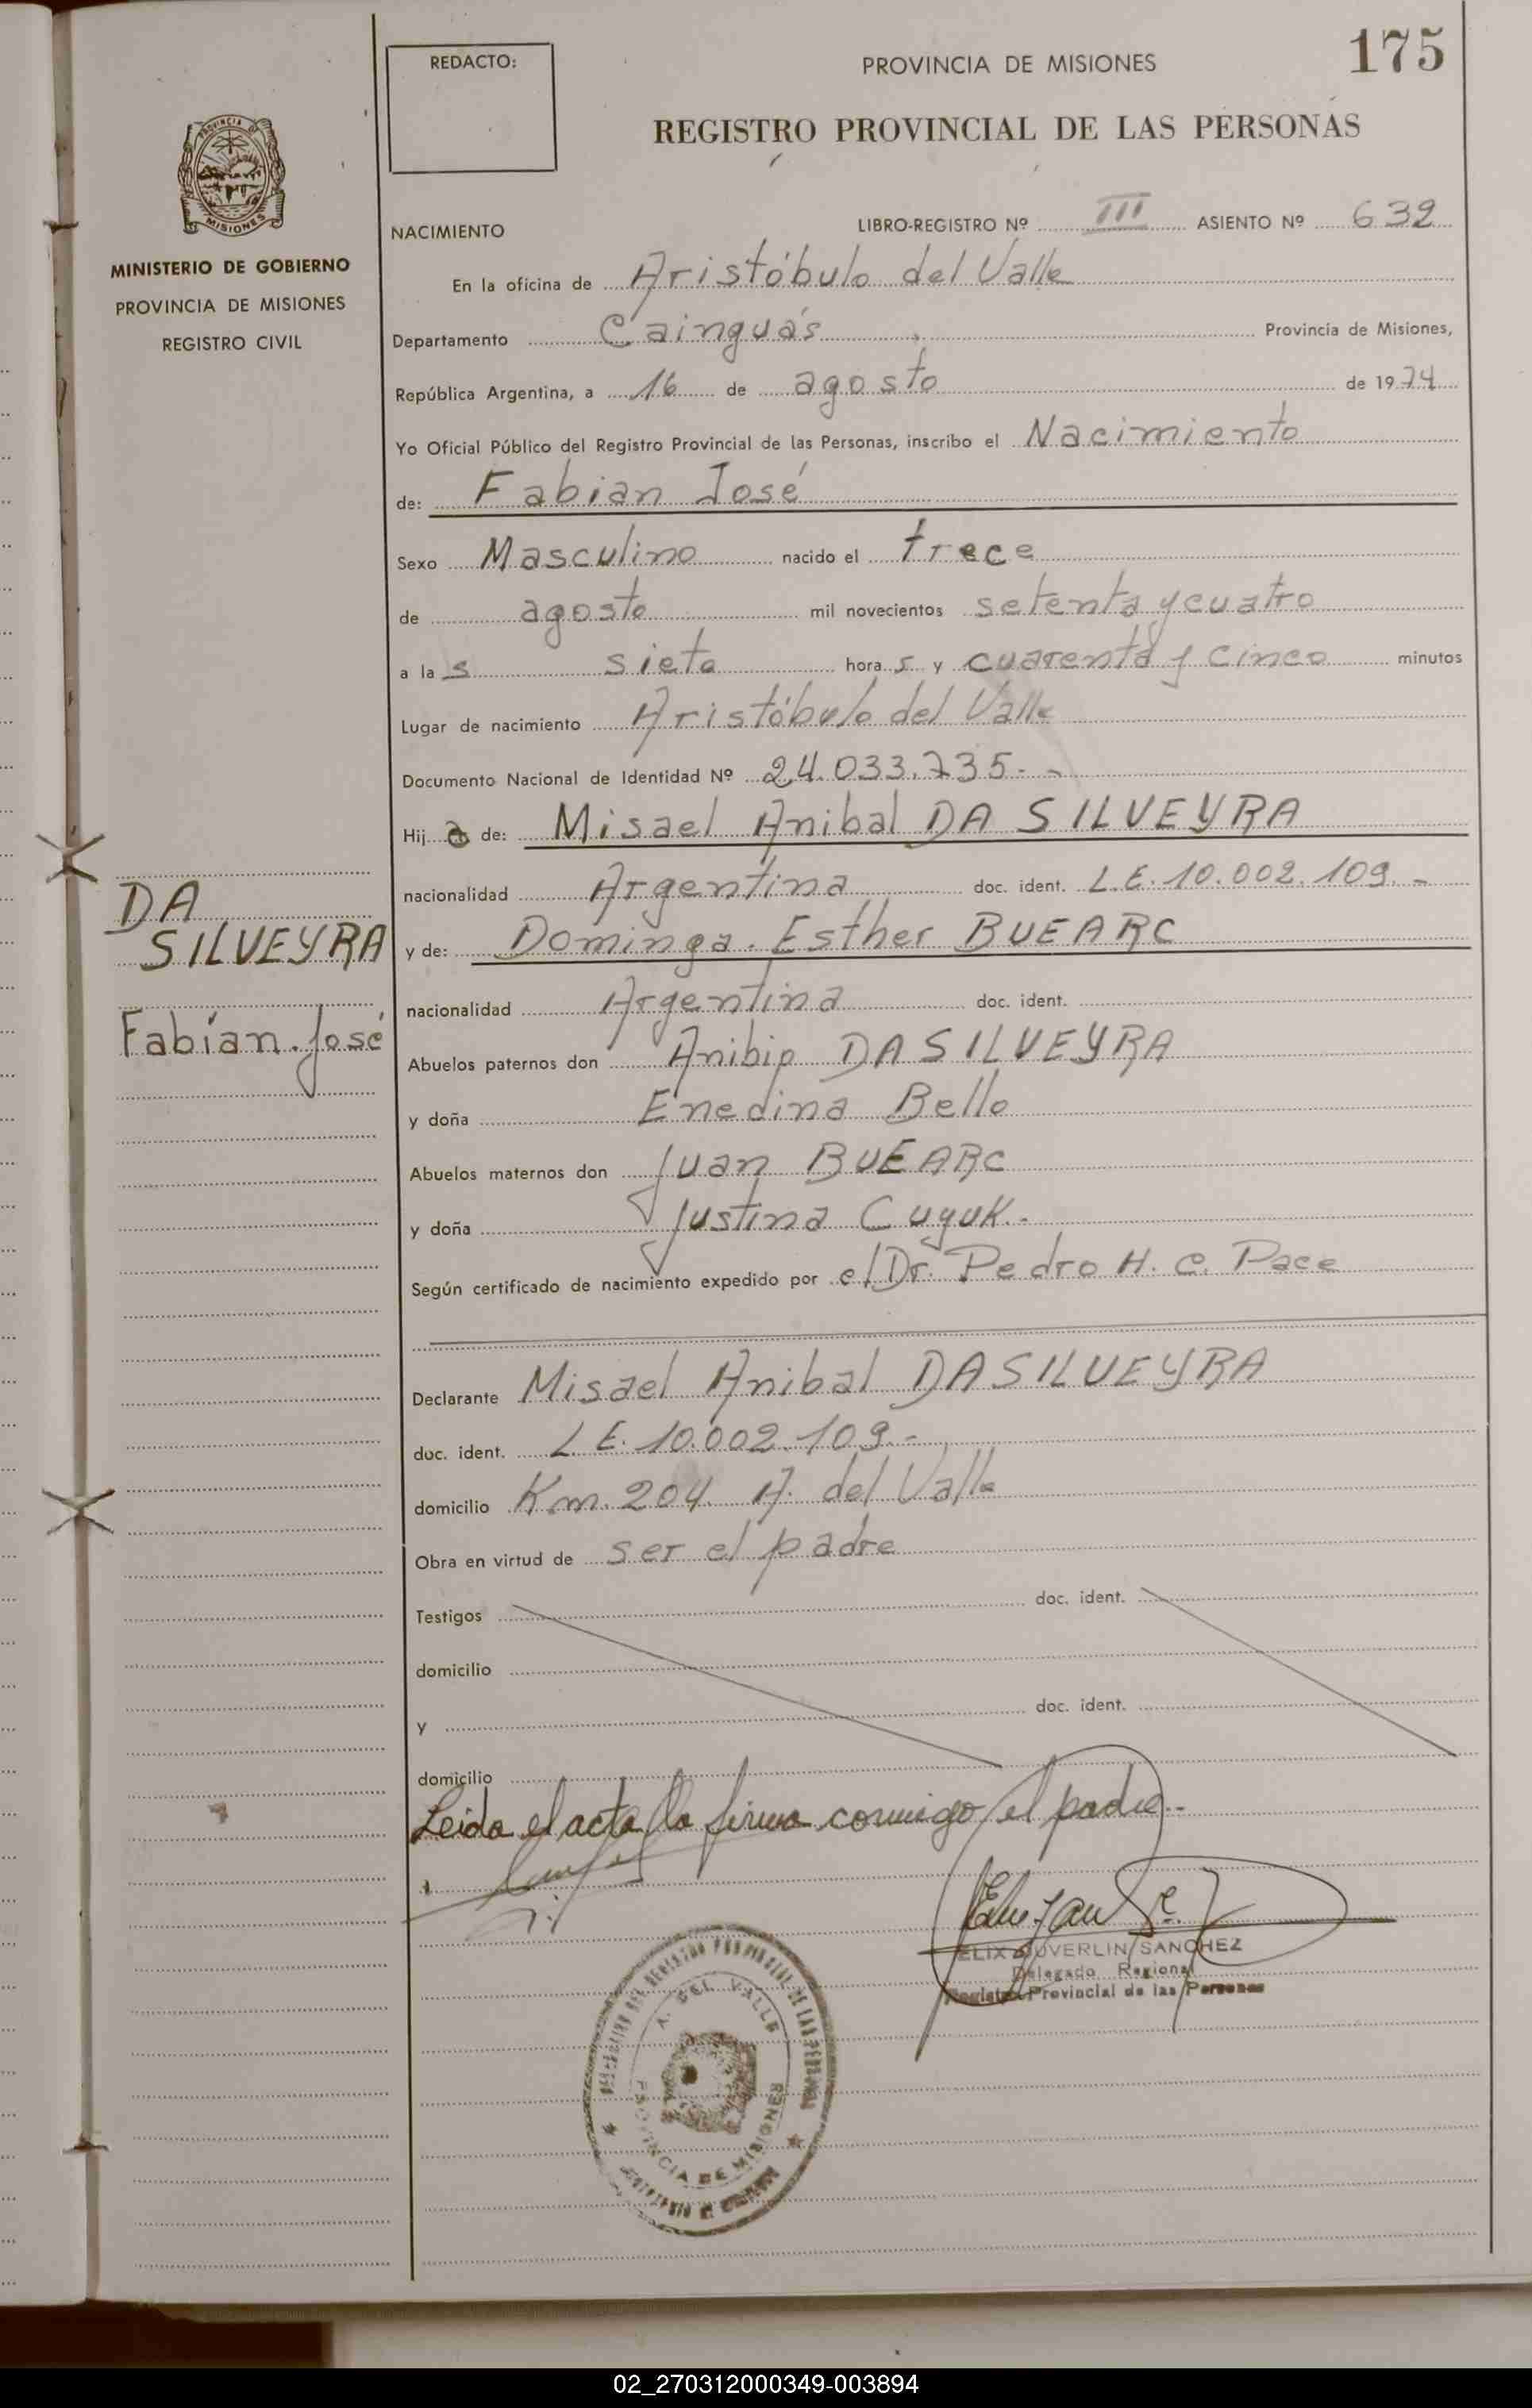 REDACTO:
PROVINCIA DE MISIONES
175
REGISTRO PROVINCIAL DE LAS PERSONAS
PROVINCIA
MISIONES
MINISTERIO DE GOBIERNO
PROVINCIA DE MISIONES
REGISTRO CIVIL
NACIMIENTO
LIBRO-REGISTRO Nº III ASIENTO Nº 632
En la oficina de Aristóbulo del Valle
Departamento Cainguás Provincia de Misiones,
República Argentina, a 16 de agosto de 1974
Yo Oficial Público del Registro Provincial de las Personas, inscribo el Nacimiento
de: Fabian José
Sexo Masculino nacido el trece
de agosto mil novecientos setenta y cuatro
a las siete horas y cuarenta y cinco minutos
Lugar de nacimiento Aristóbulo del Valle
Documento Nacional de Identidad Nº 24.033.735.-
Hijo de: Misael Anibal DA SILVEYRA
nacionalidad Argentina doc. ident. L.E. 10.002.109.-
y de: Dominga Esther BUEARC
nacionalidad Argentina doc. ident.
Abuelos paternos don Anibip DA SILVEYRA
y doña Enedina Bello
Abuelos maternos don Juan BUEARC
y doña Justina Cuyuk.-
Según certificado de nacimiento expedido por el Dr. Pedro H. C. Pace
DA
SILVEYRA
Fabían José
Declarante Misael Anibal DA SILVEYRA
doc. ident. L.E. 10.002.109.-
domicilio Km. 204 A. del Valle
Obra en virtud de ser el padre
Testigos doc. ident.
domicilio
y doc. ident.
domicilio
Leida el acta la firma conmigo el padre.-
ELIX DUVERLIN SANCHEZ
Delegado Regional
Registro Provincial de las Personas
A. DEL VALLE
PROVINCIA DE MISIONES
02_270312000349-003894